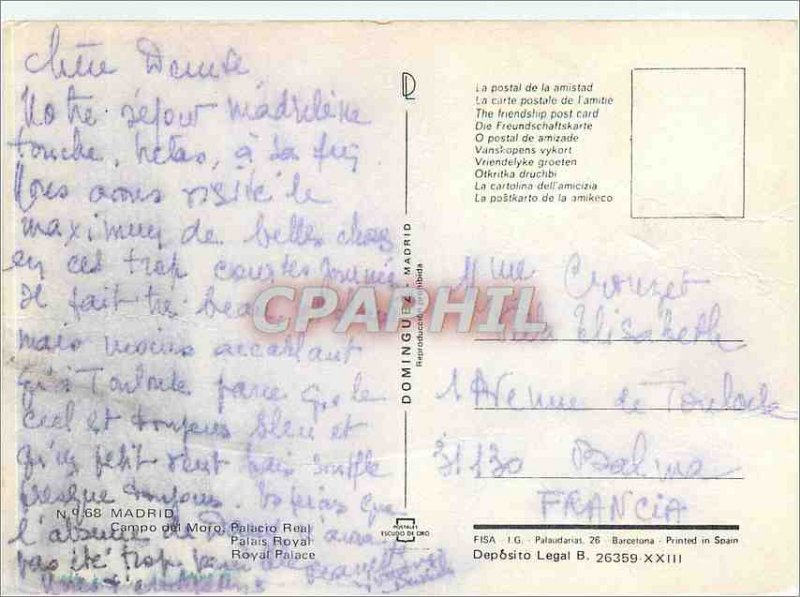 Chère Denise
Notre séjour madrilène
touche, hélas, à sa fin
Nous avons visité le
maximum de belles choses
en ces trop courtes journées
Il fait très beau
mais moins accablant
qu'à Toulouse parce que le
ciel est toujours bleu et
qu'un petit vent frais souffle
presque toujours. que
l'absence de
pas été trop
N.º 68 MADRID
Campo del Moro. Palacio Real
Palais Royal
Royal Palace
DOMINGUEZ - MADRID
Reproducción prohibida
POSTALES
ESCUDO DE ORO
La postal de la amistad
La carte postale de l'amitié
The friendship post card
Die Freundschaftskarte
O postal de amizade
Vanskopens vykort
Vriendelyke groeten
Otkritka druchbi
La cartolina dell'amicizia
La poŝtkarto de la amikeco
Mme Crouzet
Elisabeth
1 Avenue de Toulouse
31130 Balma
FRANCIA
FISA - I.G. - Palaudarias, 26 - Barcelona - Printed in Spain
Depósito Legal B. 26359-XXIII
CPAPHIL